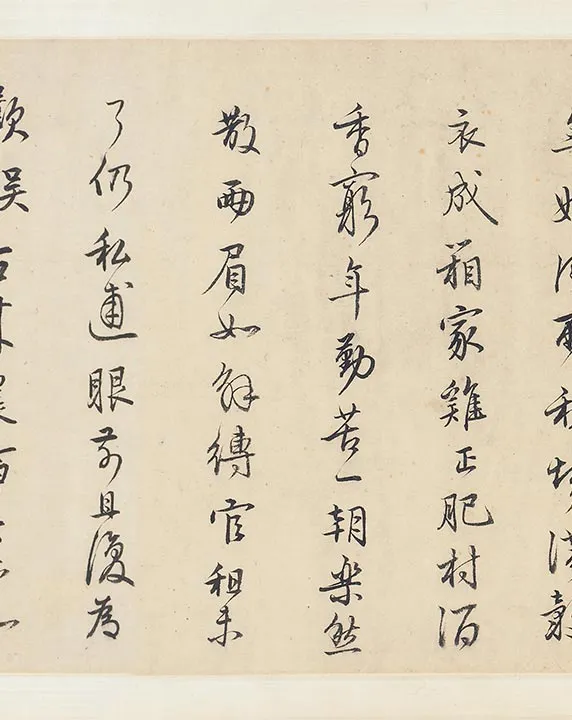 衣成箱家雞正肥村酒
香窮年勤苦一朝樂然
散兩眉如解縛官租未
了仍私逋眼前且復為
歡娛